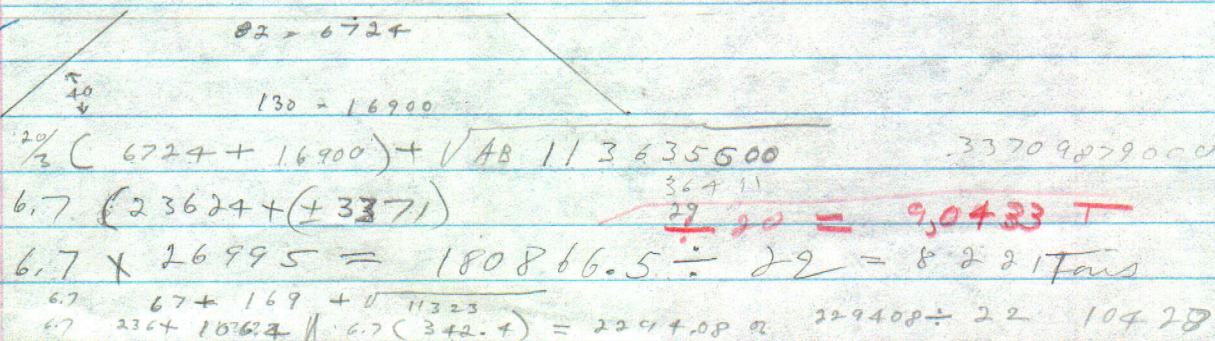 82 = 6724
40
130 = 16900
20/3 ( 6724 + 16900 ) + √AB 113635600 .33709879000
36411
6.7 (23624 + (± 3371) 29 ÷ 20 = 9,0433 T
6.7 X 26995 = 180866.5 ÷ 22 = 8221 Tons
6.7 67 + 169 + √11323
6.7 236 + 6.7 (342.4) = 2294.08 or 229408 ÷ 22 10428